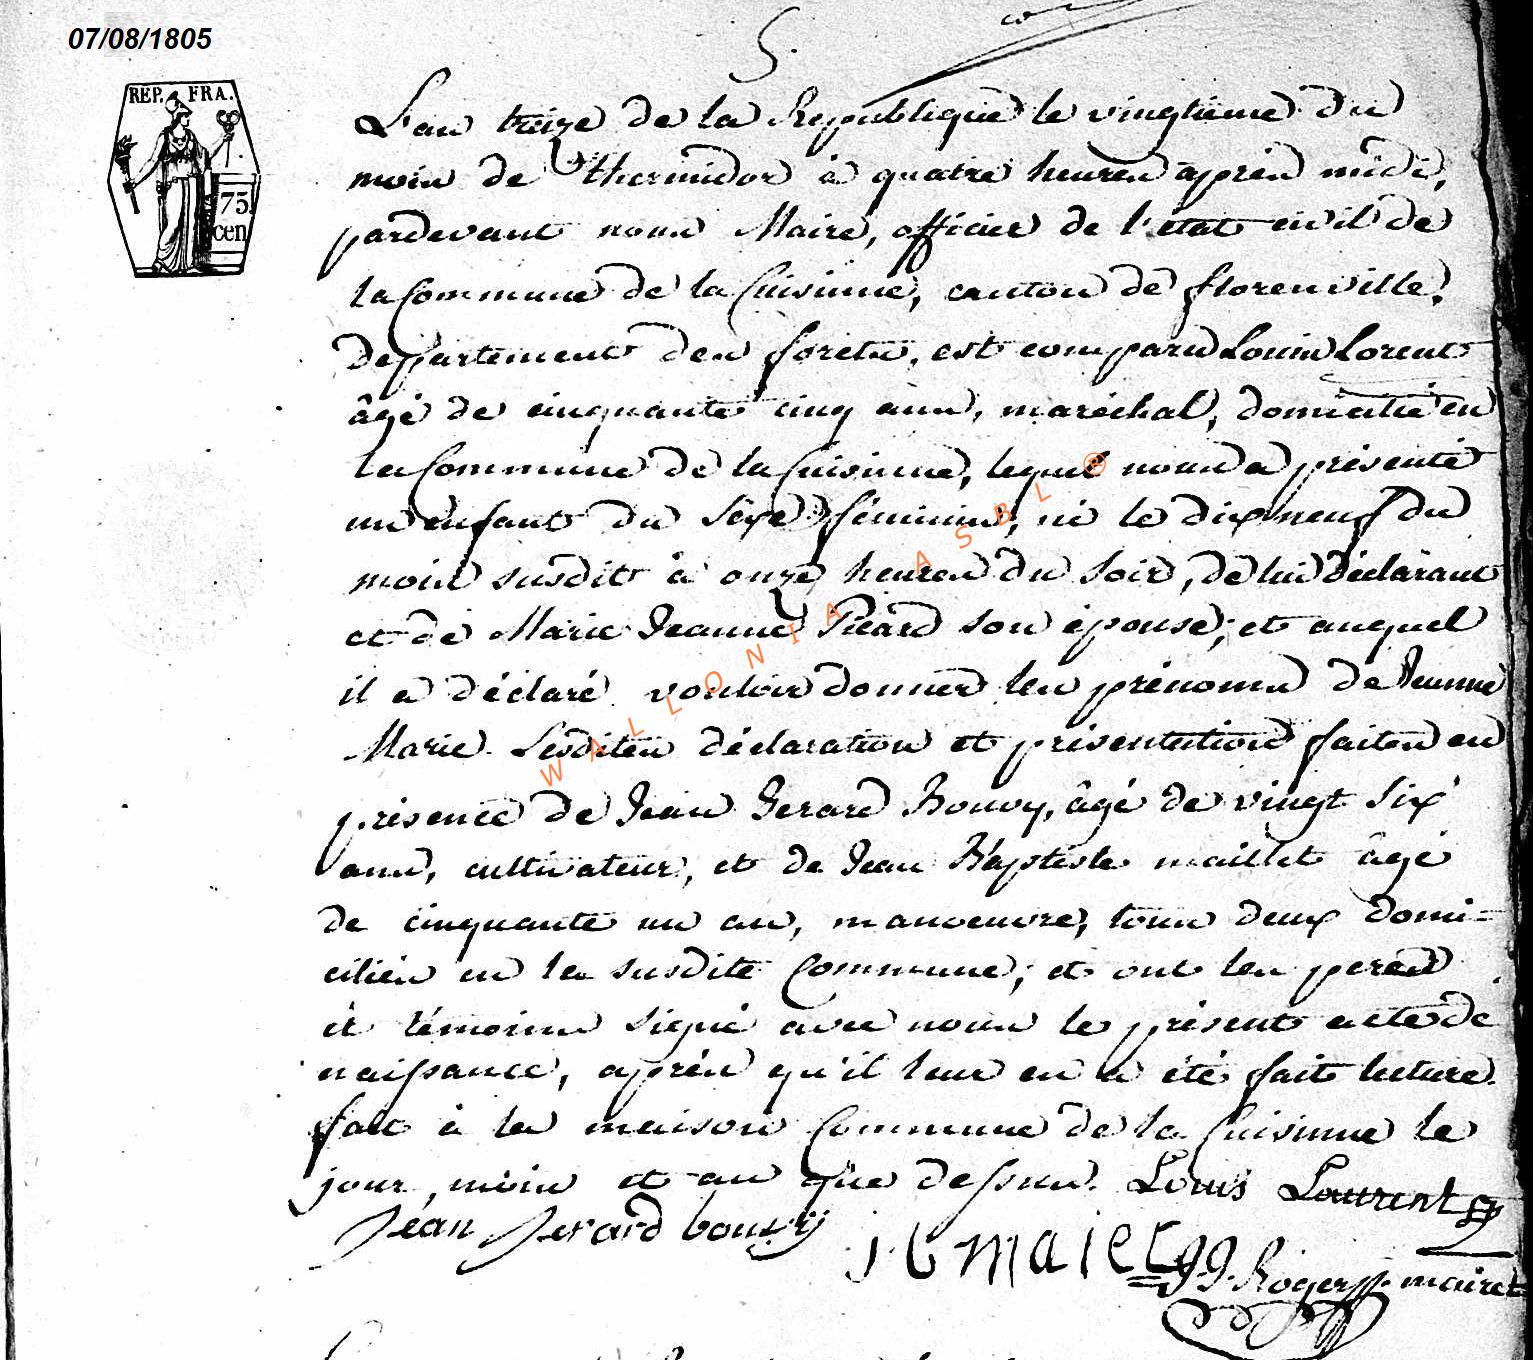 07/08/1805
5.
REP. FRA.
75.
cen
L'an treize de la Republique le vingtieme du
mois de thermidor à quatre heures après midi,
pardevant nous Maire, officier de l'état civil de
la Commune de la Cuisinne, canton de florenville,
departement des forets, est comparu Louis Lorent
âgé de cinquante cinq ans, maréchal, domicilié en
la Commune de la Cuisinne, lequel nous a présenté
un enfant du sexe féminin, né le dix neuf du
mois susdit à onze heures du soir, de lui déclarant
et de Marie Jeanne Picard son épouse; et auquel
il a déclaré vouloir donner les prénoms de Jeanne
Marie. Lesdites déclaration et présentation faites en
présence de Jean Gerard Bouvy, âgé de vingt six
ans, cultivateur, et de Jean Baptiste maillet âgé
de cinquante un an, manoeuvre, tous deux domi=
ciliés en la susdite Commune; et ont les peres
et témoins signé avec nous le présent acte de
naissance, après qu'il leur en a été fait lecture.
fait à la maison Commune de la Cuisinne le
jour, mois et an que dessus. Louis Laurent
Jean Gerard bouvÿ
j b maiet JJ. Rogerss. maire
WALLONIA ASBL ®